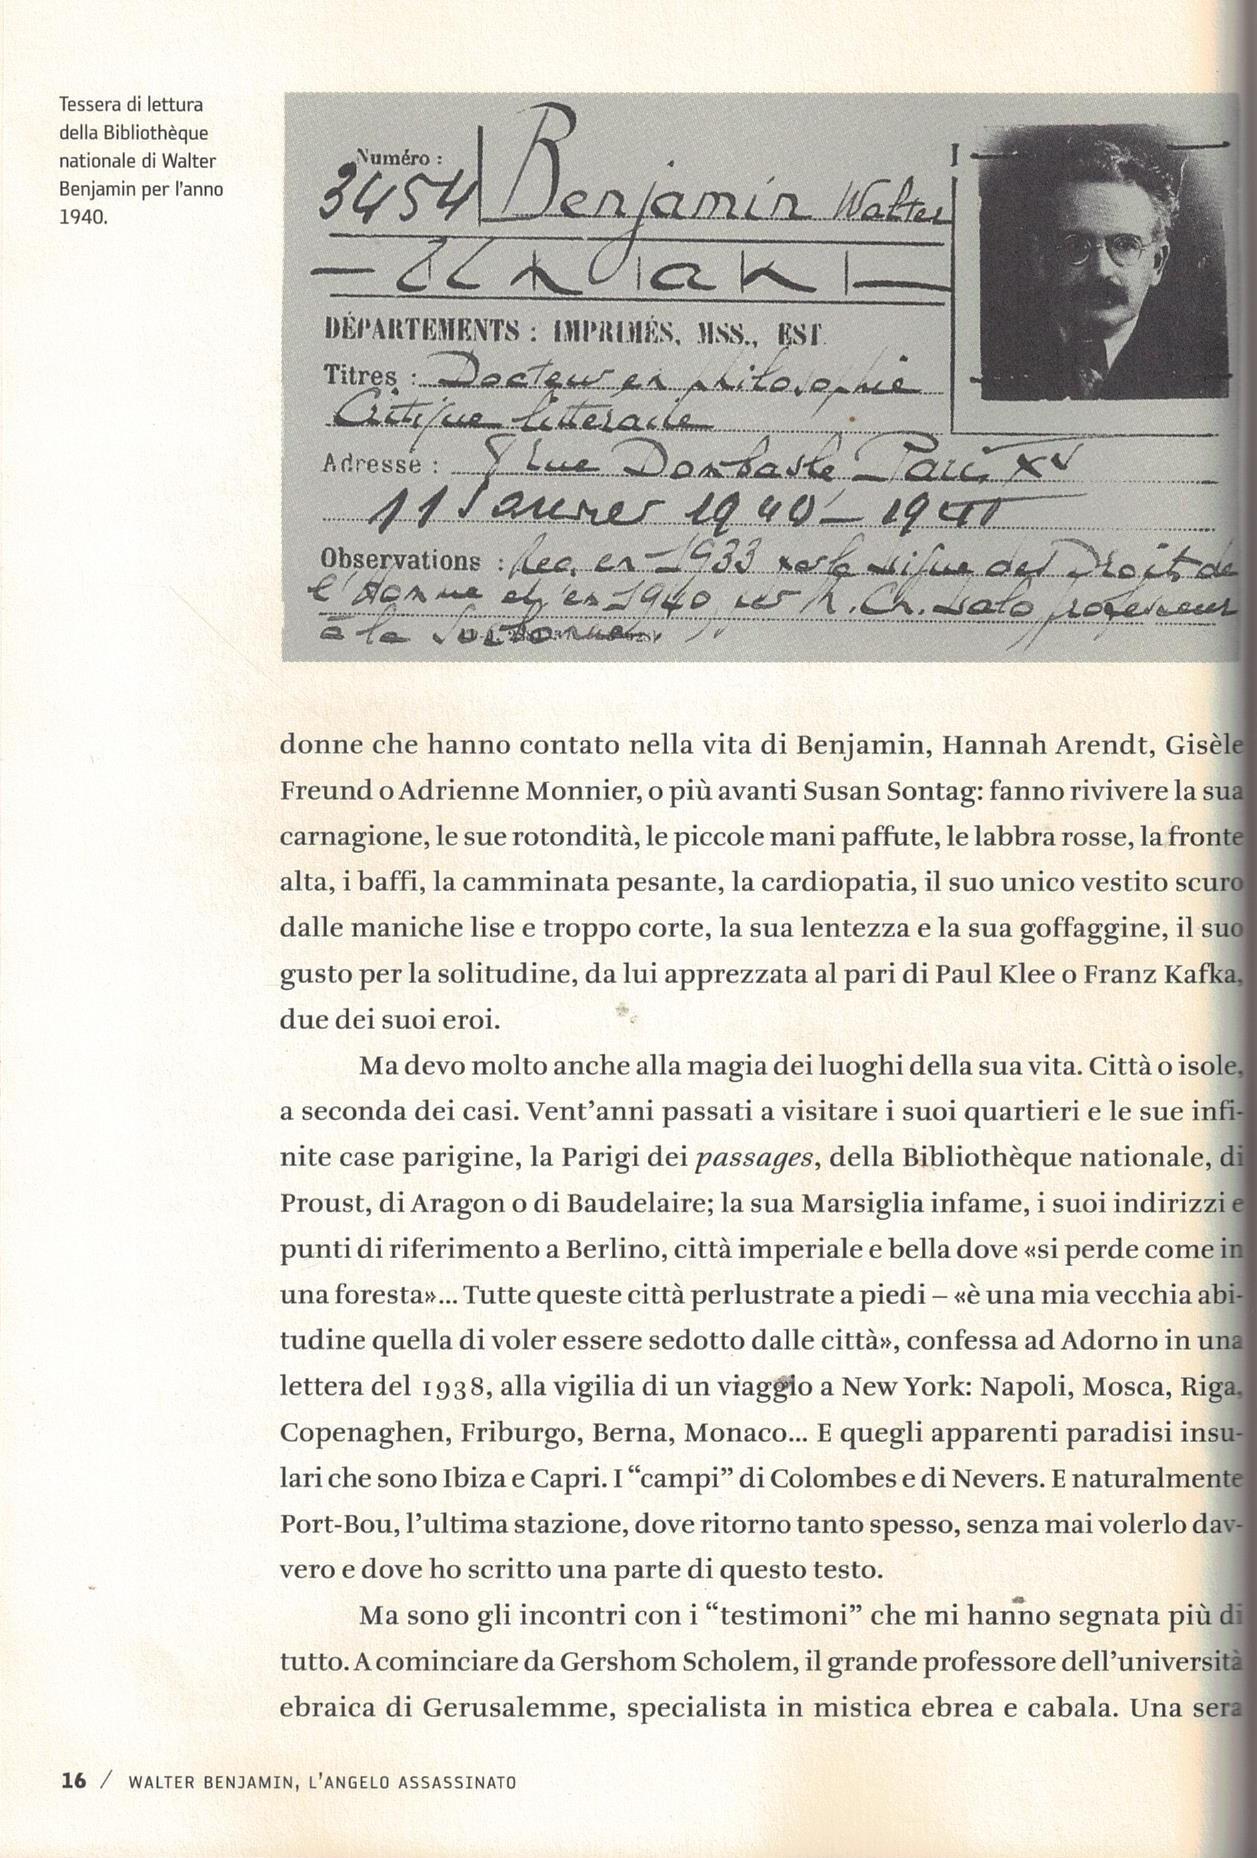 Tessera di lettura
della Bibliothèque
nationale di Walter
Benjamin per l'anno
1940.
Numéro :
3454 Benjamin Walter
DÉPARTEMENTS : IMPRIMÉS, MSS., EST
Titres : Docteur en philosophie
Critique littéraire
Adresse : rue Dombasle Paris XV
11 Janvier 1940 – 1941
Observations : Rec. en 1933 par la Ligue des Droits de
l'Homme et en 1940 par professeur
à la Sorbonne
donne che hanno contato nella vita di Benjamin, Hannah Arendt, Gisèle
Freund o Adrienne Monnier, o più avanti Susan Sontag: fanno rivivere la sua
carnagione, le sue rotondità, le piccole mani paffute, le labbra rosse, la fronte
alta, i baffi, la camminata pesante, la cardiopatia, il suo unico vestito scuro
dalle maniche lise e troppo corte, la sua lentezza e la sua goffaggine, il suo
gusto per la solitudine, da lui apprezzata al pari di Paul Klee o Franz Kafka,
due dei suoi eroi.
Ma devo molto anche alla magia dei luoghi della sua vita. Città o isole,
a seconda dei casi. Vent'anni passati a visitare i suoi quartieri e le sue infi-
nite case parigine, la Parigi dei passages, della Bibliothèque nationale, di
Proust, di Aragon o di Baudelaire; la sua Marsiglia infame, i suoi indirizzi e
punti di riferimento a Berlino, città imperiale e bella dove «si perde come in
una foresta»... Tutte queste città perlustrate a piedi – «è una mia vecchia abi-
tudine quella di voler essere sedotto dalle città», confessa ad Adorno in una
lettera del 1938, alla vigilia di un viaggio a New York: Napoli, Mosca, Riga,
Copenaghen, Friburgo, Berna, Monaco... E quegli apparenti paradisi insu-
lari che sono Ibiza e Capri. I “campi” di Colombes e di Nevers. E naturalmente
Port-Bou, l'ultima stazione, dove ritorno tanto spesso, senza mai volerlo dav-
vero e dove ho scritto una parte di questo testo.
Ma sono gli incontri con i “testimoni” che mi hanno segnata più di
tutto. A cominciare da Gershom Scholem, il grande professore dell'università
ebraica di Gerusalemme, specialista in mistica ebrea e cabala. Una sera
16 / WALTER BENJAMIN, L'ANGELO ASSASSINATO